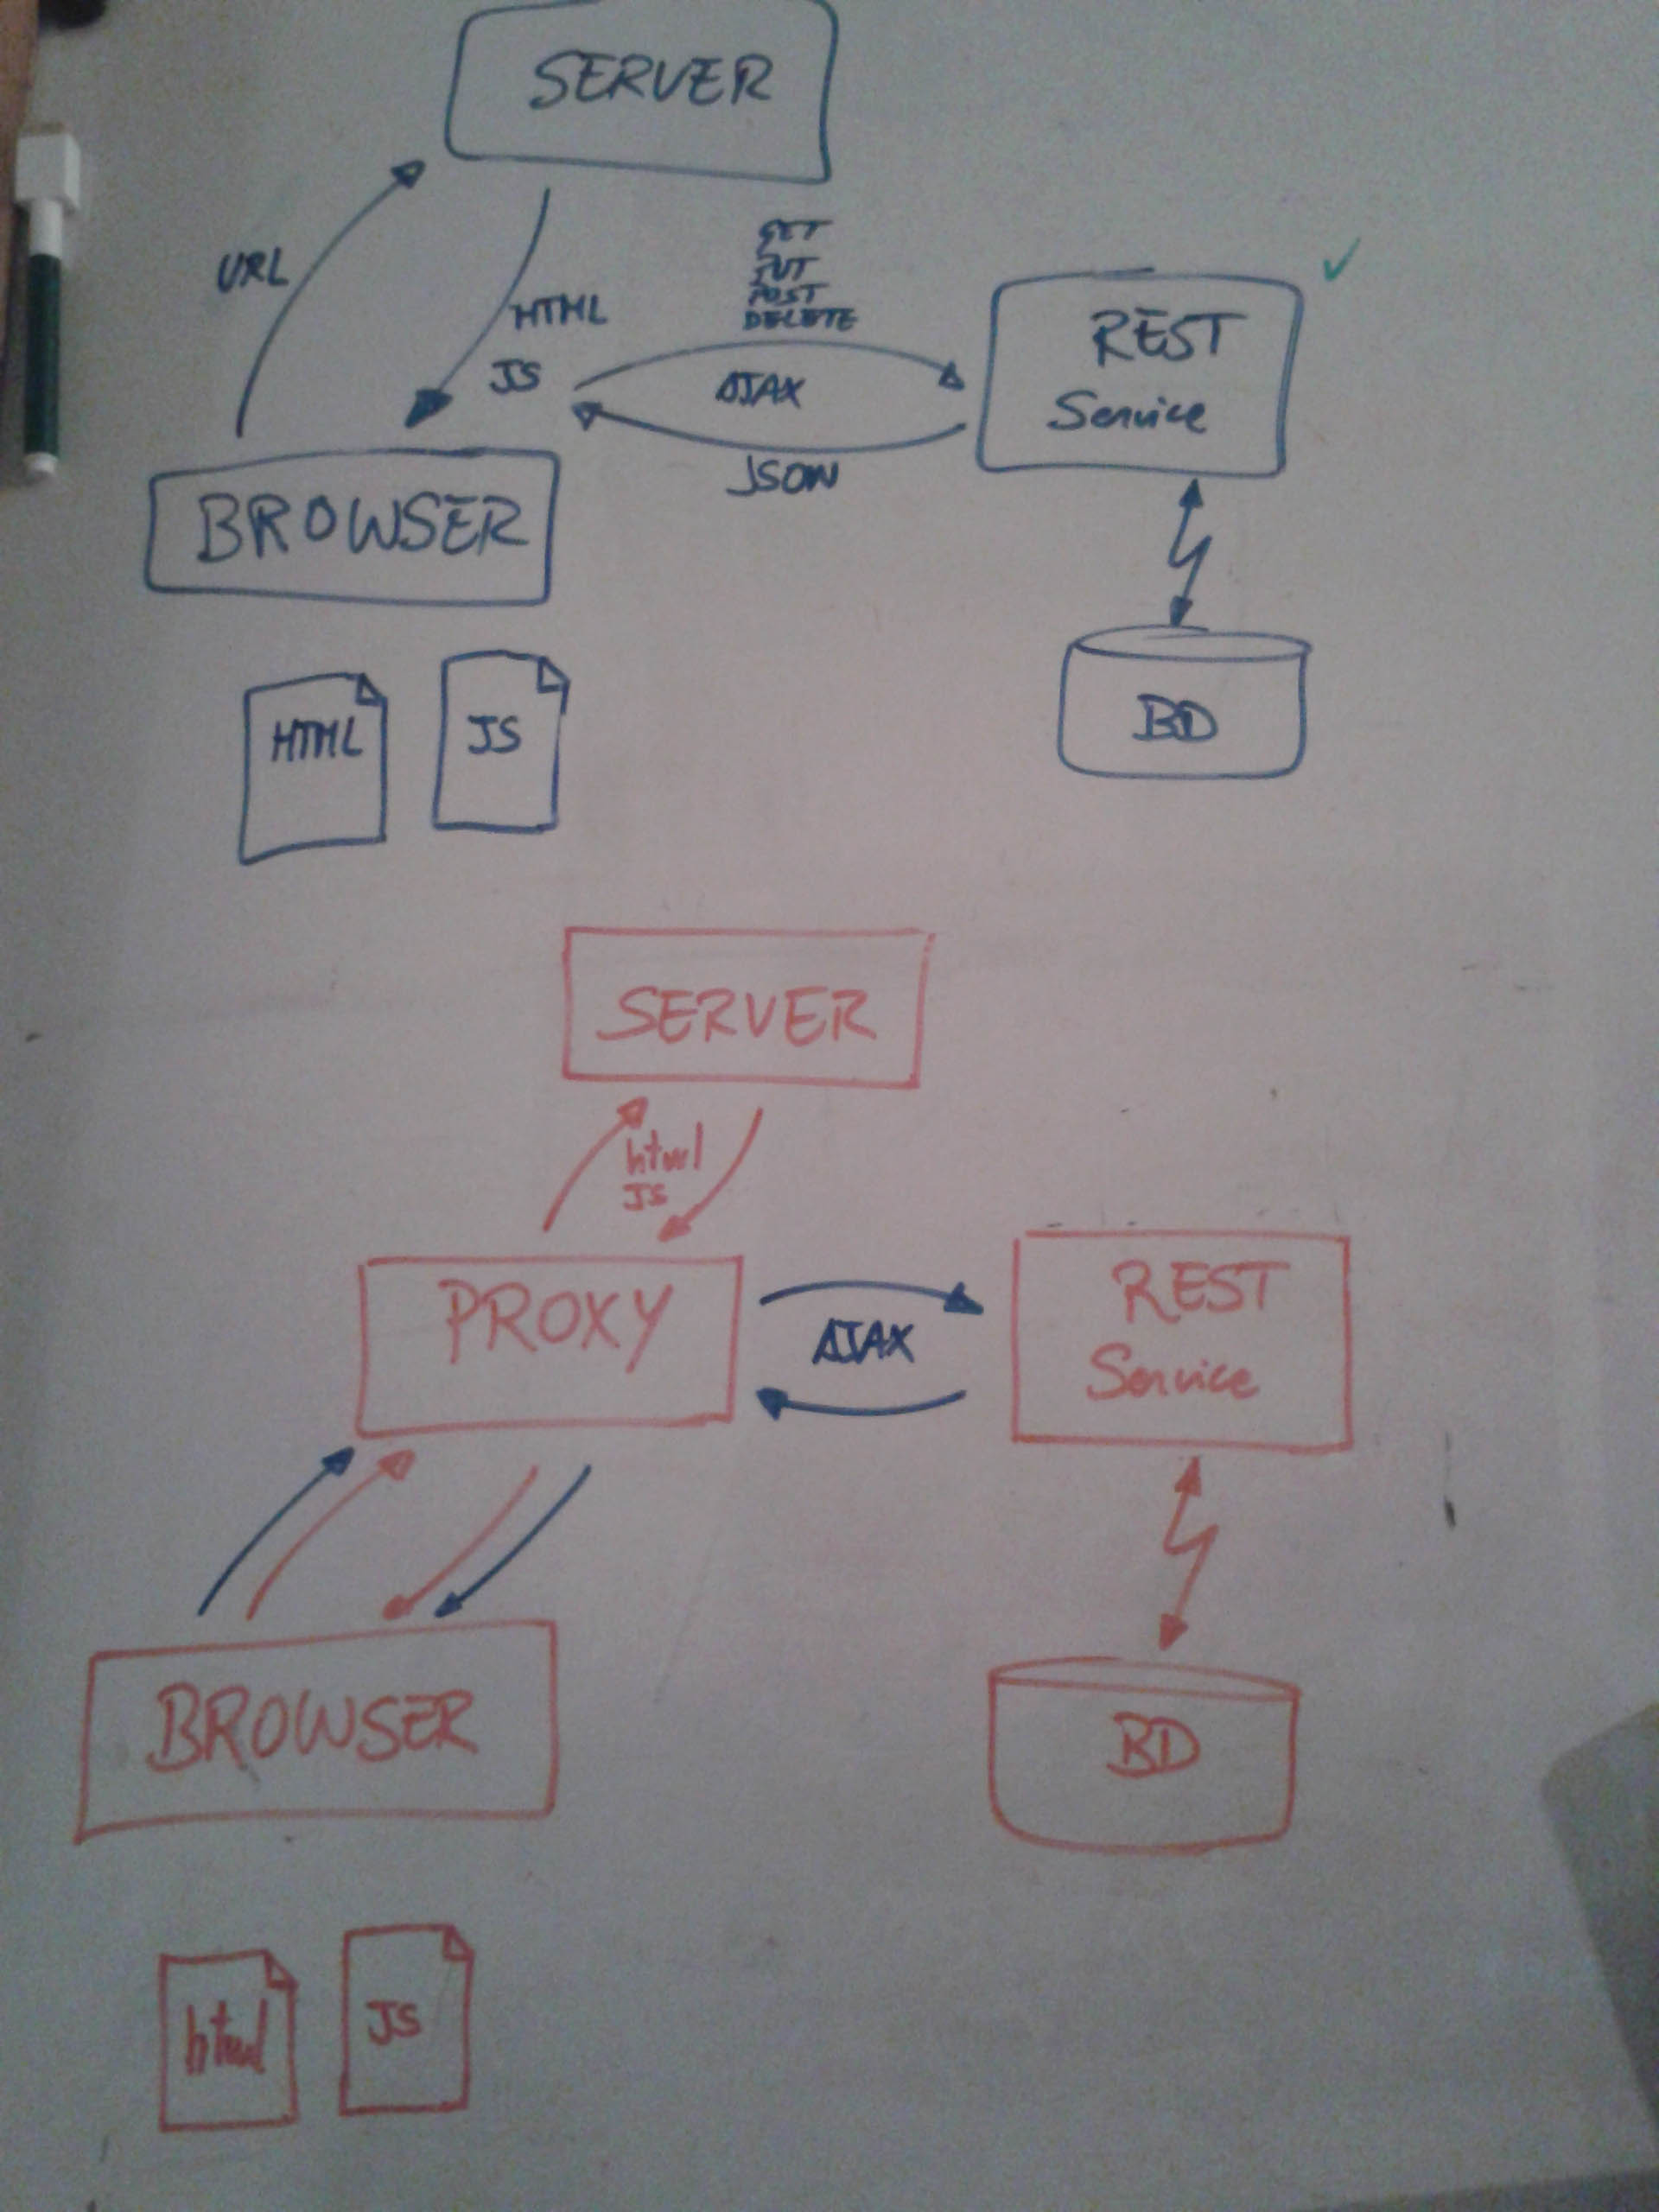 SERVER
URL
HTML
JS
GET
PUT
POST
DELETE
AJAX
JSON
REST
Service
BROWSER
HTML
JS
BD
SERVER
html
JS
PROXY
AJAX
REST
Service
BROWSER
BD
html
JS